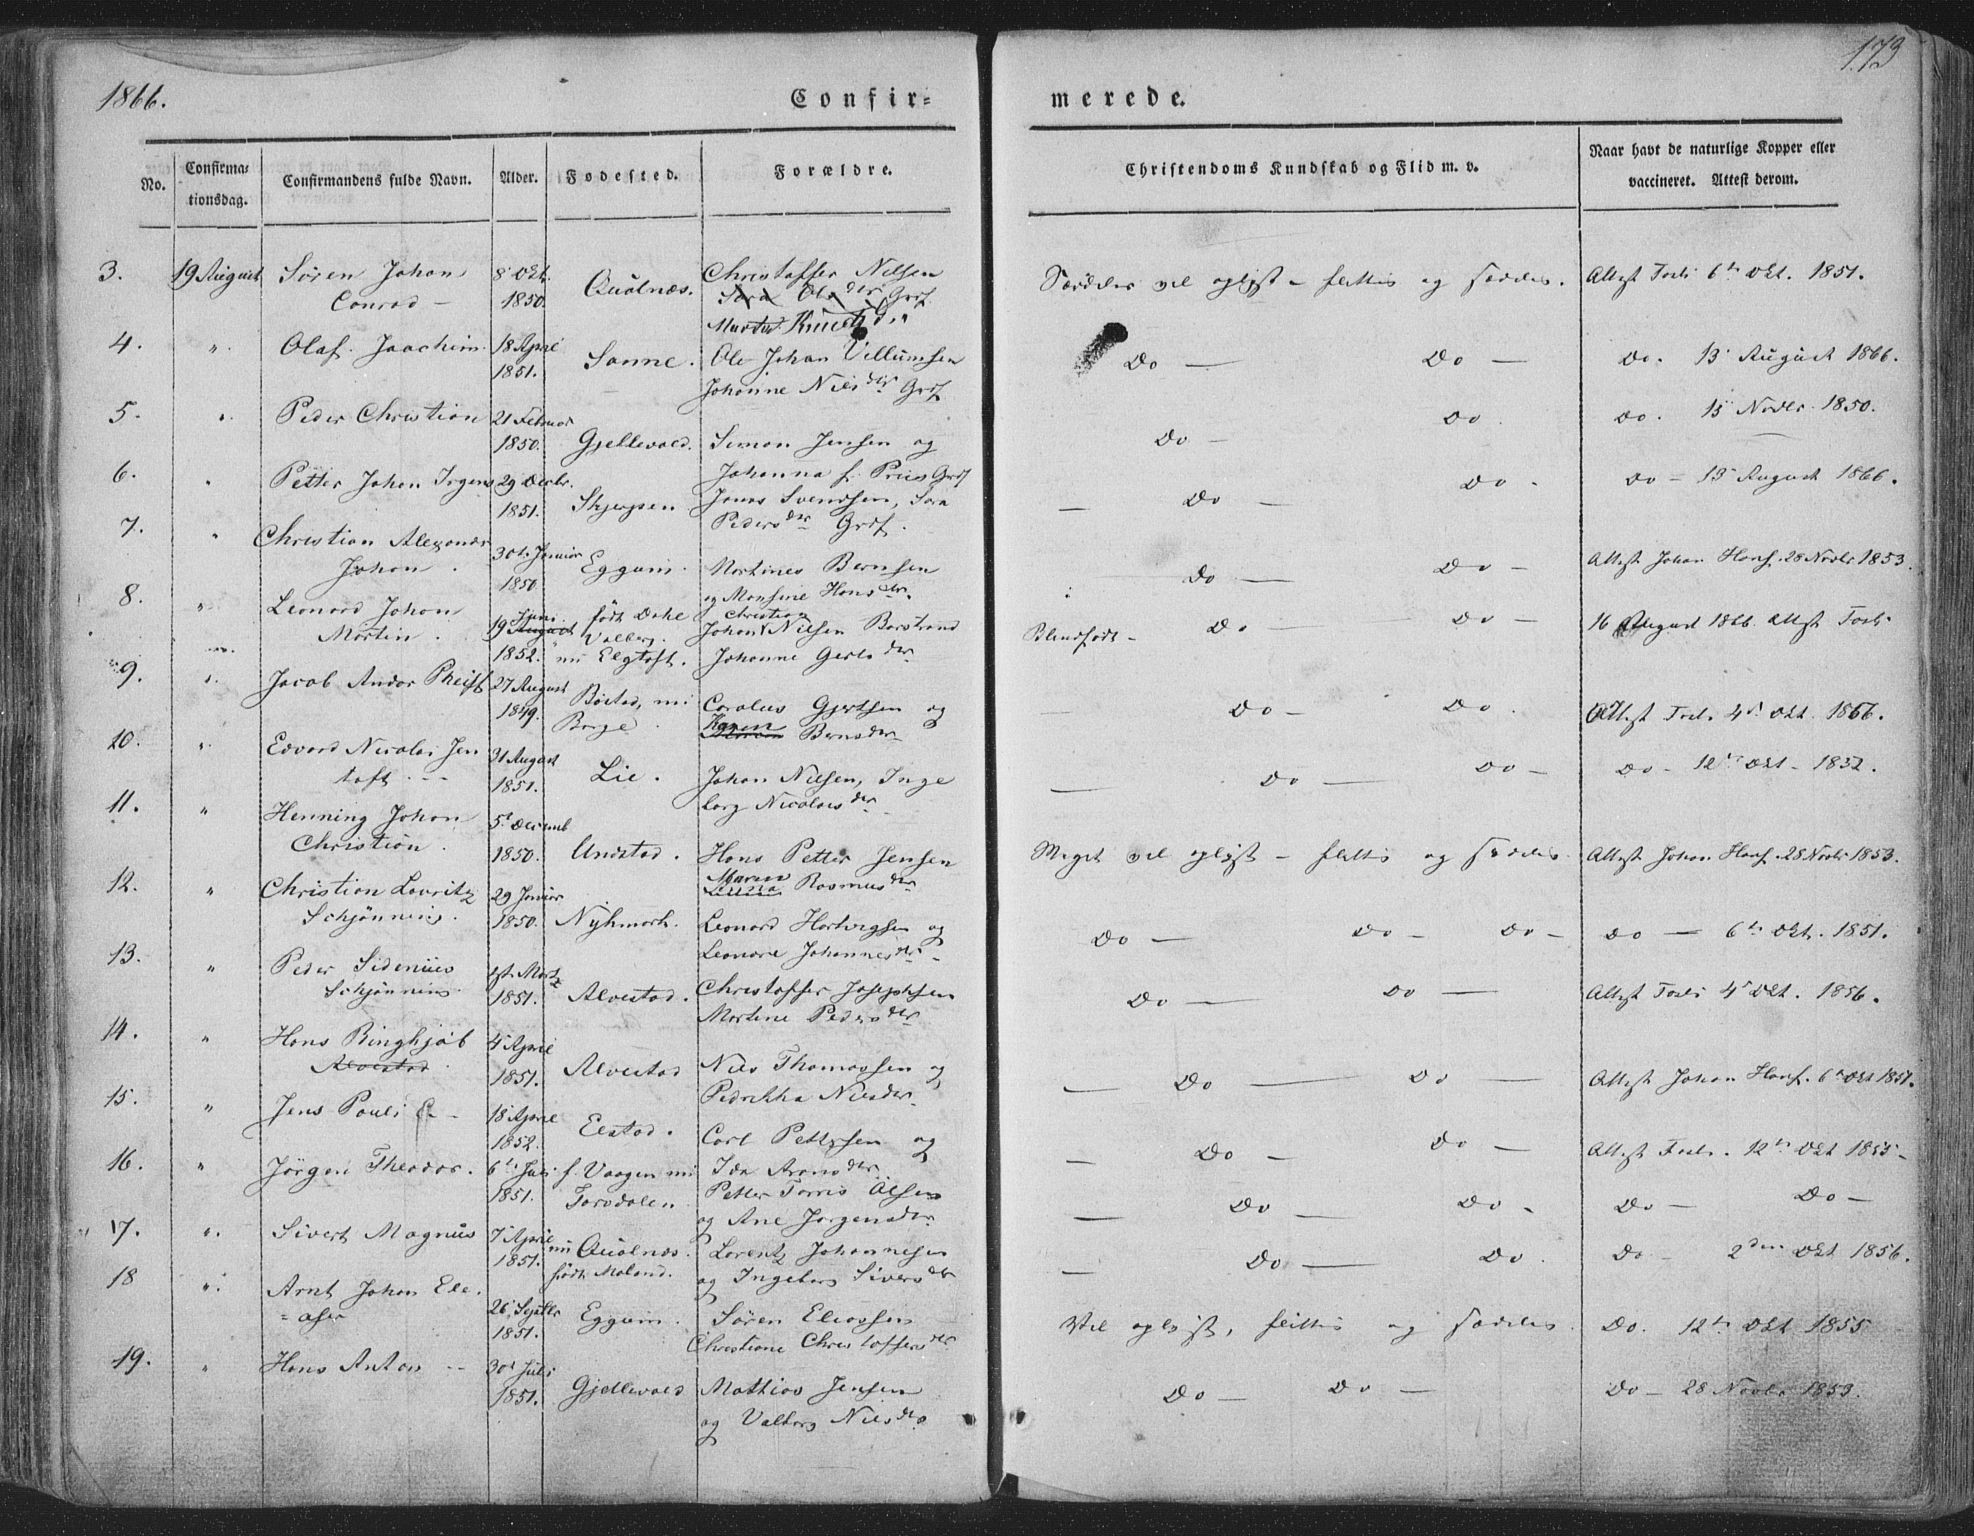 1866.
Confir=
merede.
173
No.
Confirma-
tionsdag.
Confirmandens fulde Navn.
Alder.
Fødested.
Forældre.
Christendoms Kundskab og Flid m. v.
Naar havt de naturlige Kopper eller
vaccineret. Attest derom.
3. 19 August Sören Johan
Conrad -
8 Oct.
1850.
Qualnæs.
Christoffer Nilsen
Sara Ols der Grf.
Martha Knuds dr
vel oplyst - flittig og sædelig.
Attest Fosli 6te Okt. 1851.
4. " Olaf Joachim
18 April
1851.
Sanne.
Ole Johan Villumsen
Johanne Niels der Grf
Do - Do -
Do. 13 August 1866.
5. " Peder Christian
21 Februar
1850.
Gjellevold.
Simon Jensen og
Johanna f. Griis Grf
Do - Do.
Do. 15 Novbr. 1850.
6. " Petter Johan Irgens
29 Decbr.
1851.
Skjerpen
Jonas Svendsen, Sara
Peders der Grf.
- Do - Do -
Do - 13 August 1866.
7. " Christian Alexander
Johan.
30te Januar
1850
Eggum.
Martines Bernsen
og Monsine Hans der.
Do - Do -
Attest Johan Hans. 28 Novbr 1853.
8. " Leonard Johan
Martin.
Juni
19 August
1852.
født Dahl
Valberg.
nu Elgtoft.
Christian
Johan Nilsen Borstrand
Johanne Gerts der
Blindfødt - Do - Do -
16 August 1866 Attest Fosli
9. " Jacob Andor Pheiff
27 August
1849.
Bøstad, nu
Borge.
Carolus Gjertsen og
Karen
Berns der
- Do - Do.
Attest Fosli 4d Okt. 1856.
10. " Edvard Nicolai Jen
toft -
31 August
1851.
Lie.
Johan Nilsen, Inge
borg Nicolais der
- Do - Do -
Do - 12te Okt - 1852.
11. " Henning Johan
Christian.
5d Decemb
1850.
Undstad.
Hans Petter Jensen
Maren
Rasmus der
Meget vel oplyst - flittig og sædelig.
Attest Johan Hans. 28 Novbr 1853.
12. " Christian Lauritz
Schjønning.
29 Januar
1850.
Nyhmark.
Leonard Hartvigsen og
Leonore Johannes dr.
Do - Do - Do -
Do - 6te Okt. 1851.
13. " Peder Sidenius
Schjønning.
1ste Martz
1851.
Alvestad.
Christoffer Josephsen
Martine Peders der
Do - Do -
Attest Fosli 4d Okt. 1856.
14. " Hans Ringhjøb
Alvestad.
4d April
1851.
Alvestad
Nils Thomassen og
Pedrikka Niels der
- Do - Do -
Attest Johan Hans. 6te Okt 1851.
15. " Jens Pauli
18 April
1852.
Elstad.
Carl Pettersen og
Ida Arons der
- Do - Do -
Attest Fosli. 12te Okt 1855 -
16. " Jörgen Theodor.
6te Juli
1851.
f. Vaagen nu
Torsdalen.
Petter Torris Olsen
og Ane Jørgens der
- Do - Do -
Do - Do -
17. " Sivert Magnus
7 April
1851.
nu Qualnæs.
født Moland.
Lorentz Johannesen
og Ingeborg Sivers der
- Do - Do.
Do - 2den Okt 1856.
18 " Arnt Johan Ele-
=aser
26 Septbr
1851.
Eggum.
Sören Eliassen
Christiane Christoffers der
Vel oplyst, flittig og sædelig.
Do. 12te Okt 1855
19. " Hans Anton -
30d Juli
1851.
Gjellevold
Mathias Jensen
og Valborg Niels der
Do - Do -
Do - 28 Novbr 1853.